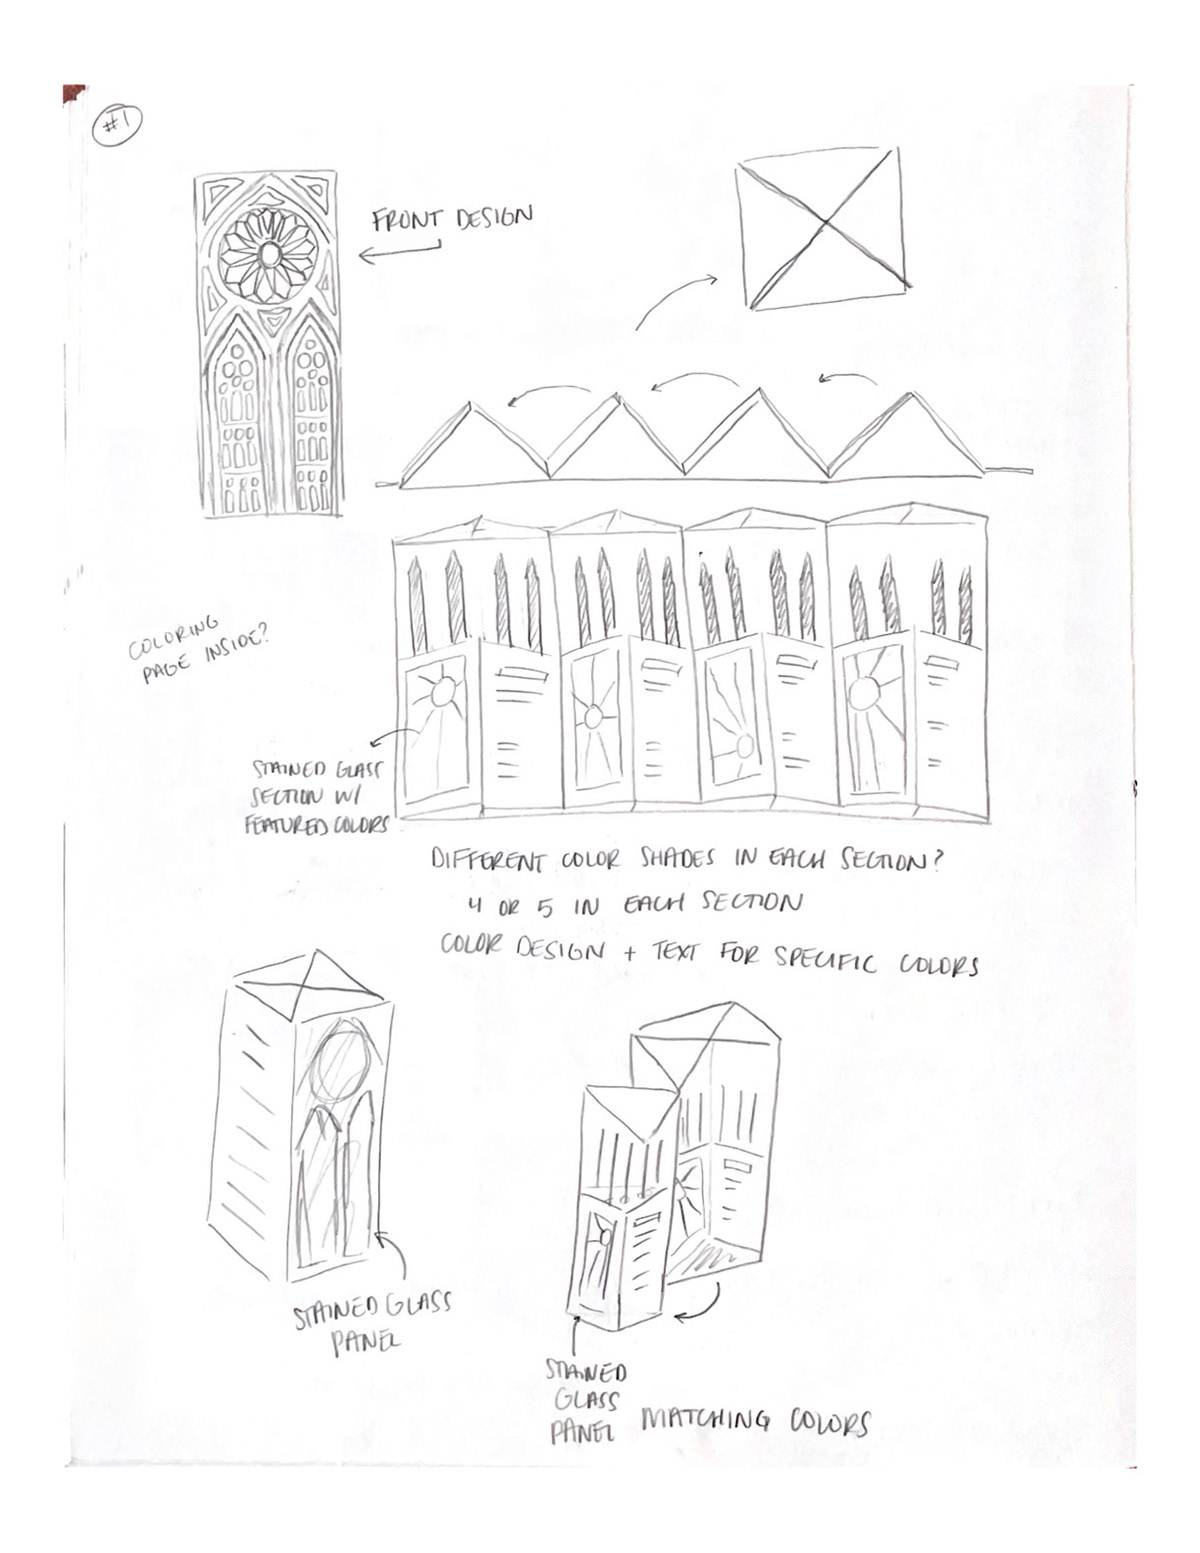 #1
FRONT DESIGN
COLORING
PAGE INSIDE?
STAINED GLASS
SECTION W/
FEATURED COLORS
DIFFERENT COLOR SHADES IN EACH SECTION?
4 OR 5 IN EACH SECTION
COLOR DESIGN + TEXT FOR SPECIFIC COLORS
STAINED GLASS
PANEL
STAINED
GLASS
PANEL
MATCHING COLORS